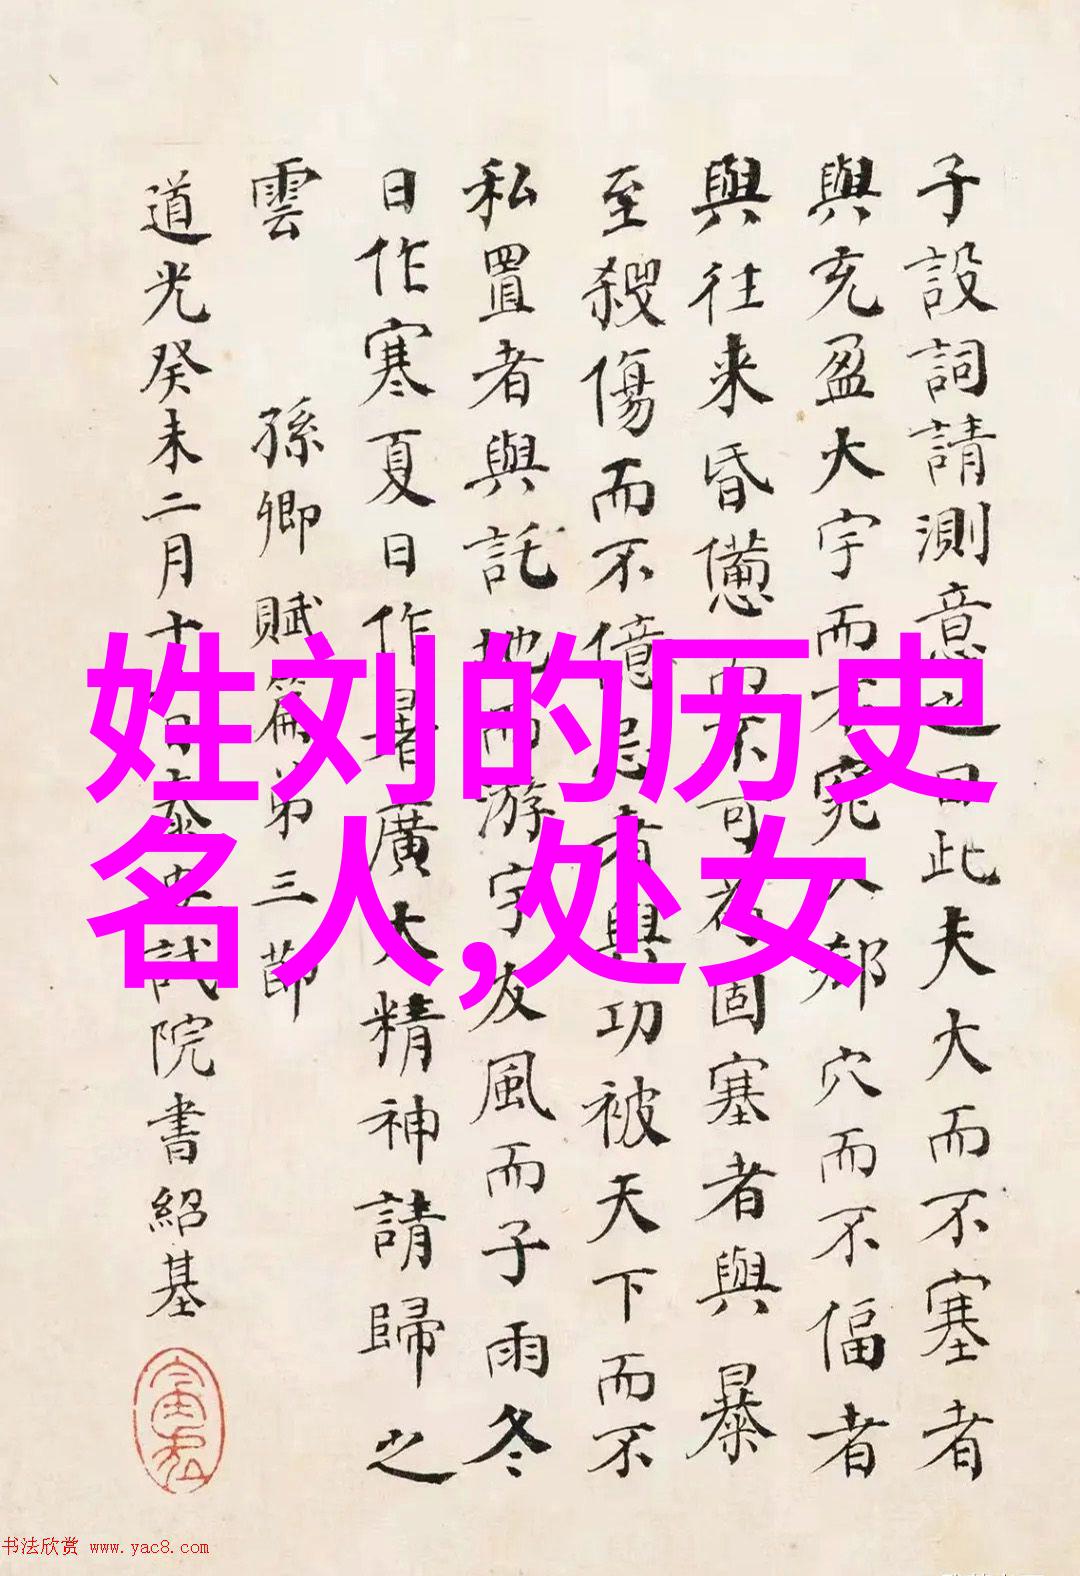 子設詞請測意之曰此夫大而不塞者
與充盈大宇而不窕入郄穴而不偪者
與往来昏憊而不可為固塞者與暴
至殺傷而不億忌者與功被天下而不
私置者與託地而游宇友風而子雨冬
日作寒夏日作暑廣大精神請歸之
雲 孫卿賦篇弟三節
道光癸未二月十日泰安試院書紹基
姓刘的历史
名人,处女
书法欣赏 www.yac8.com